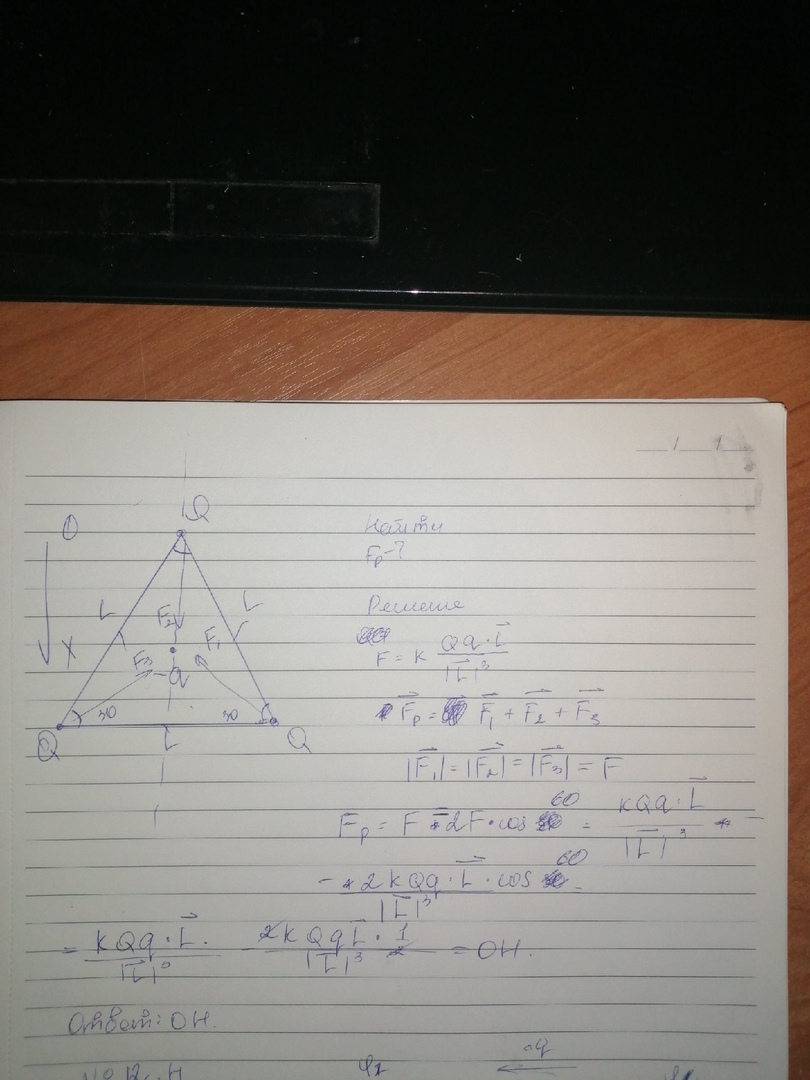 Q
O
L
L
F₂
F₁
X
F₃
-q
30
30
Q
L
Q
Найти
Fр-?
Решение
F = k Qq·L⃗ / |L⃗|³
F⃗р = F⃗₁ + F⃗₂ + F⃗₃
|F⃗₁| = |F⃗₂| = |F⃗₃| = F
Fр = F - 2F·cos 60 = kQq·L⃗ / |L⃗|³ -
- 2kQq·L⃗·cos 60 / |L⃗|³ =
= kQq·L⃗ / |L⃗|³ - 2kQqL⃗·1 / |L⃗|³ 2 = 0Н.
Ответ: 0Н.
φ₁